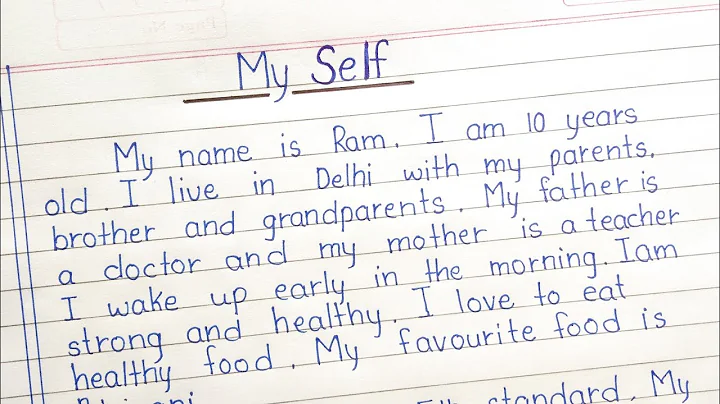 My Self
My name is Ram. I am 10 years
old. I live in Delhi with my parents,
brother and grandparents. My father is
a doctor and my mother is a teacher
I wake up early in the morning. I am
strong and healthy. I love to eat
healthy food. My favourite food is
standard. My